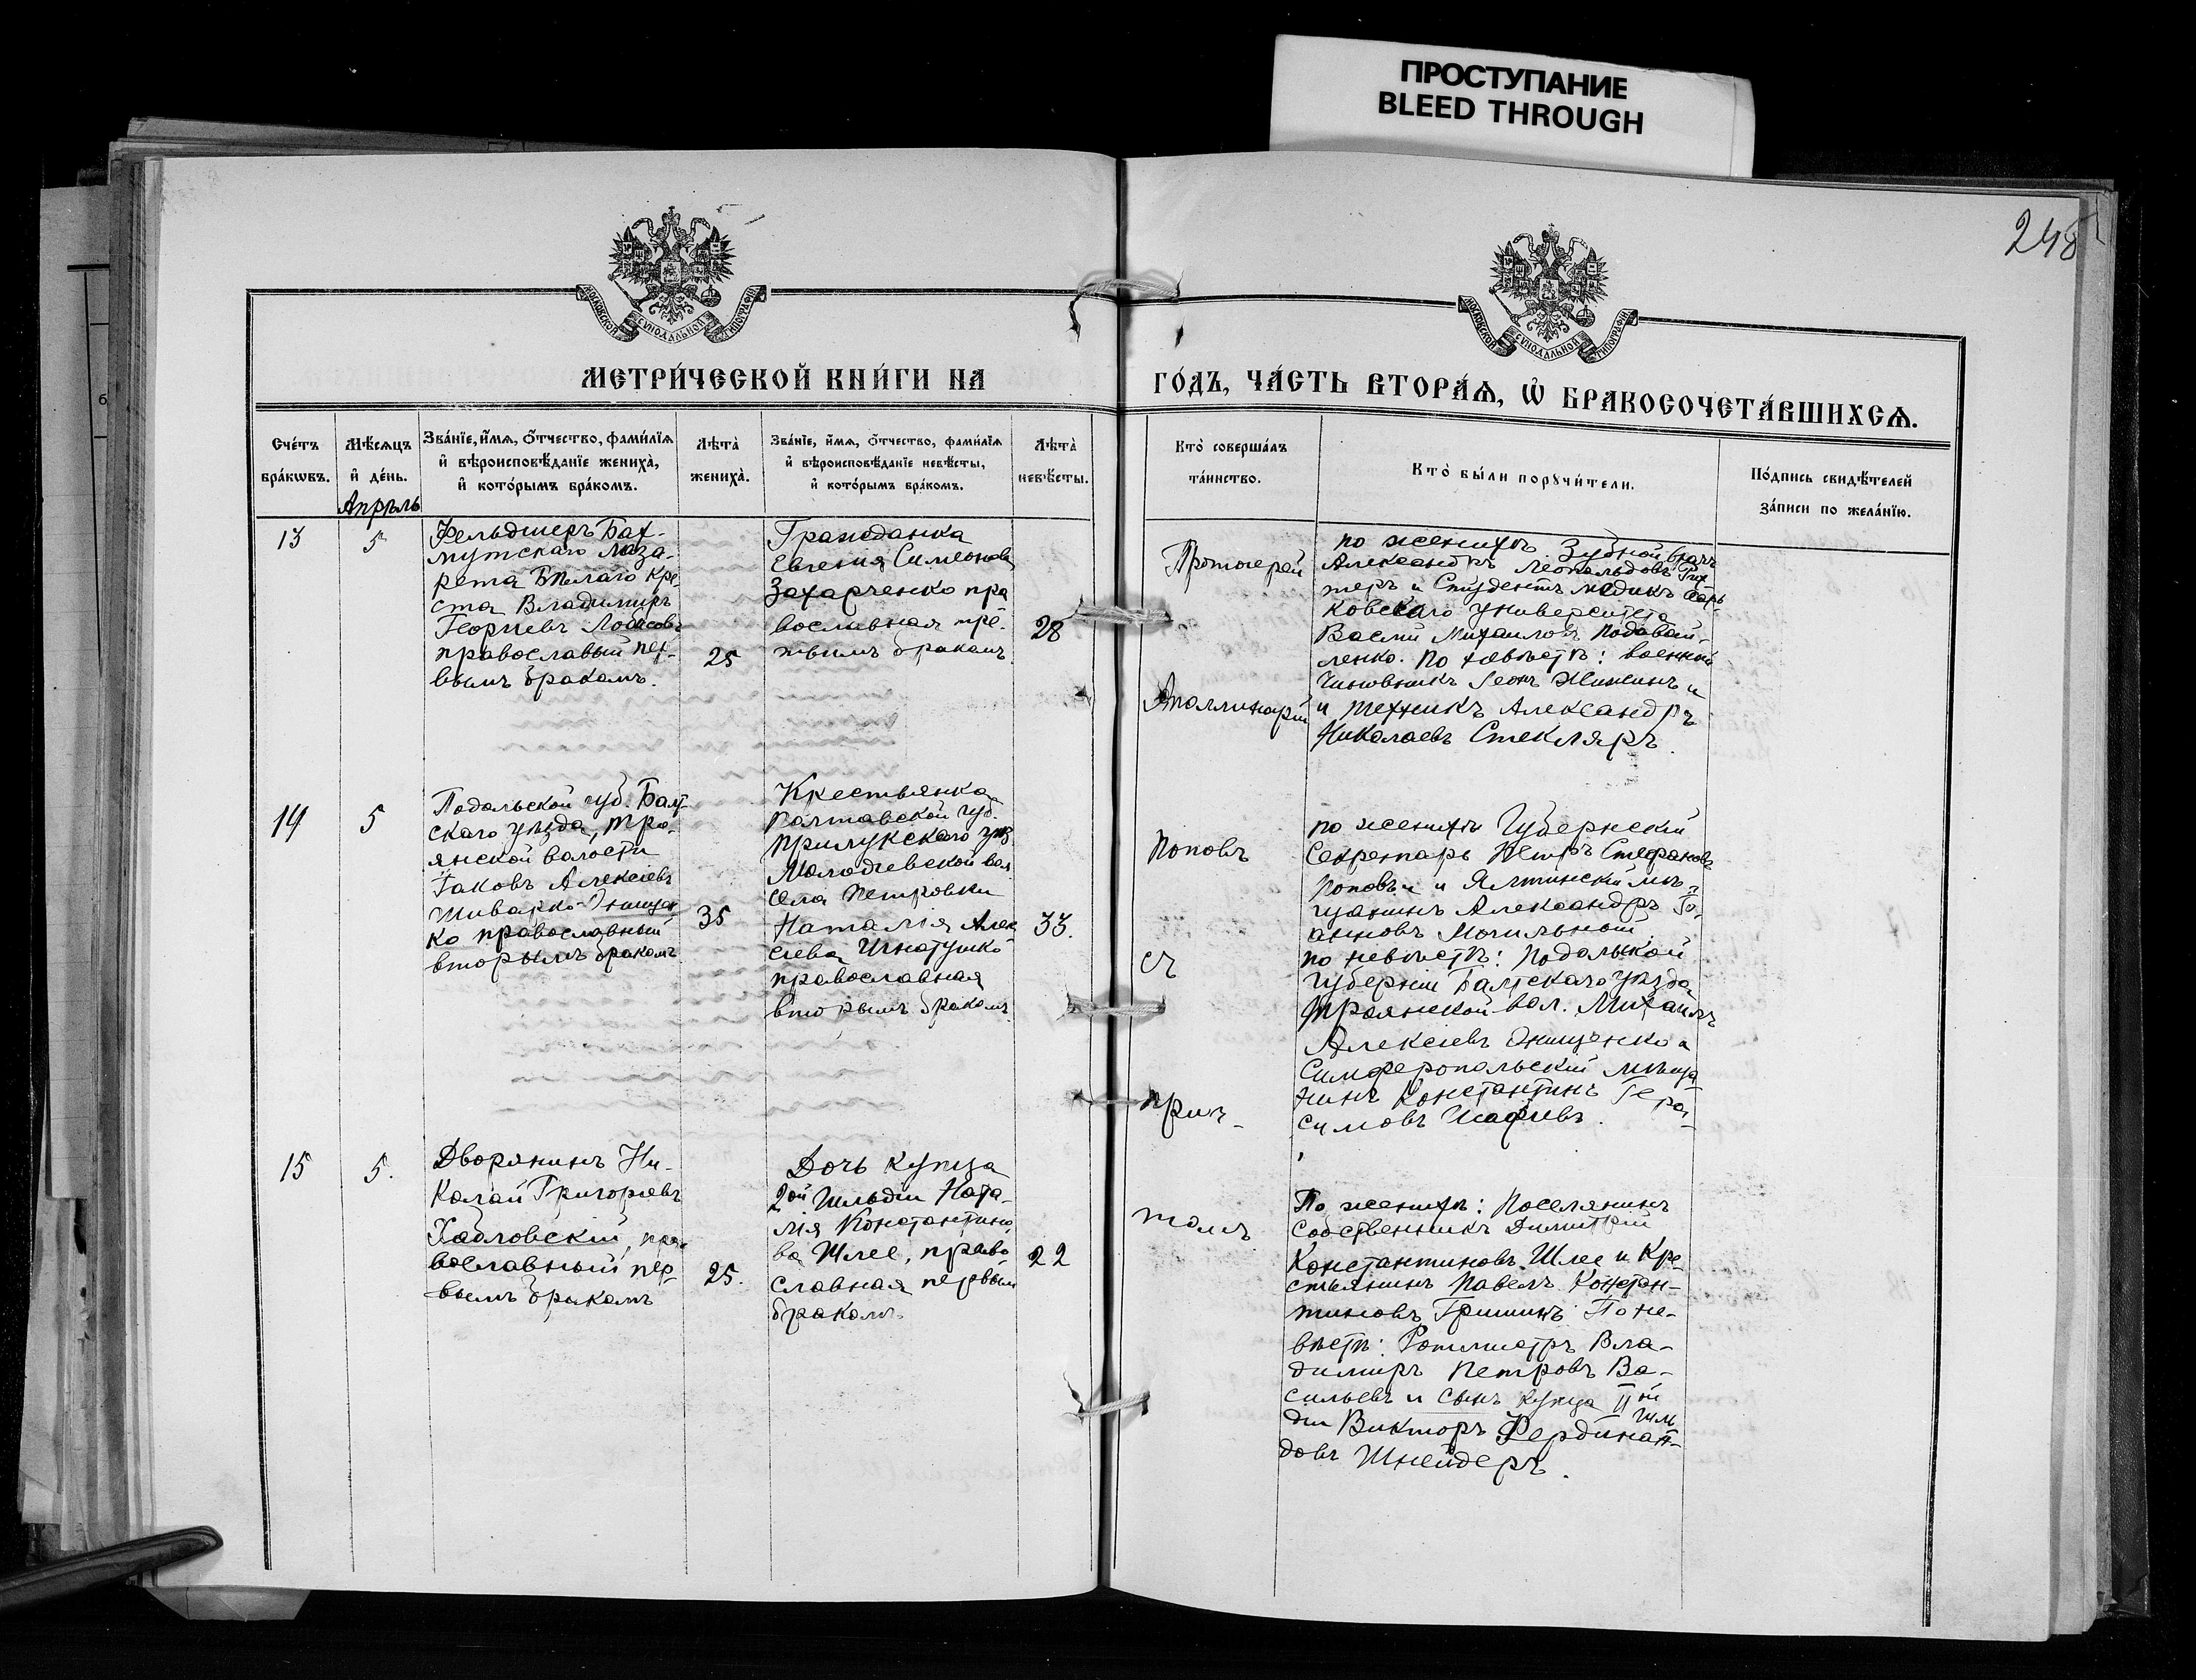 ПРОСТУПАНИЕ
BLEED THROUGH
248
МОСКОВСКОЙ СѴНОДАЛЬНОЙ ТИПОГРАФІИ
МОСКОВСКОЙ СѴНОДАЛЬНОЙ ТИПОГРАФІИ
МЕТРИ́ЧЕСКОЙ КНИ́ГИ НА
ГО́ДЪ, ЧА́СТЬ ВТОРА́Ѧ, Ѽ БРАКОСОЧЕТА́ВШИХСѦ.
Сче́тъ
бра́кωвъ.
Мѣ́сѧцъ
и҆ де́нь.
Апрѣль
Зва́нїе, и҆́мѧ, ѻ҆́тчество, фами́лїѧ
и҆ вѣроисповѣ́данїе жениха̀,
и҆ кото́рымъ бра́комъ.
Лѣ́та
жениха̀.
Зва́нїе, и҆́мѧ, ѻ҆́тчество, фами́лїѧ
и҆ вѣроисповѣ́данїе невѣ́сты,
и҆ кото́рымъ бра́комъ.
Лѣ́та
невѣ́сты.
Кто̀ соверша́лъ
та́инство.
Кто̀ бы́ли порꙋчи́тели.
По́дпись свидѣ́телей
за́писи по жела́нїю.
13
5
Фельдшеръ Бах-
мутскаго лаза-
рета Бѣлаго Кре
ста Владимиръ
Георгіевъ
православный пер-
вымъ бракомъ.
25
Гражданка
Евгенія Симеонова
Захарченко пра
вославная пер-
вымъ бракомъ
28
Протоіерей
Аполлинарій
по женихѣ Зубной врачъ
Александръ Леопольдовъ Рих
теръ и Студентъ медикъ Харь
ковскаго университета
Василій Михаиловъ Подовай-
ленко. По невѣстѣ: военный
Чиновникъ Леонъ и
и техникъ Александръ
Николаевъ Стекляръ.
14
5
Подольской губ. Балт
скаго уѣзда, Тро-
янской волости
Іаковъ Алексіевъ
Шиварко-Онищен
ко православный
вторымъ бракомъ
35
Крестьянка
Полтавской губ.
Прилукскаго уѣз
вол
села Петровки
Наталія Алек
сіева Игнатушко
православная
вторымъ бракомъ.
33.
Поповъ
съ
прич-
по женихѣ Губернскій
Секретарь Петръ Стефановъ
Поповъ и Ялтинскій мѣ-
щанинъ Александръ Іо-
анновъ Могильный.
по невѣстѣ: Подольской
губерніи Балтскаго уѣзда
Троянской вол. Михаилъ
Алексіевъ Онищенко и
Симферопольскій мѣща
нинъ Константинъ Гера-
симовъ
15
5.
Дворянинъ Ни-
колай Григоріевъ
Хабловскій, пра-
вославный пер-
вымъ бракомъ
25.
Дочь купца
2ой Гильдіи Ната-
лія Константино-
ва Шлее, право
славная первым
бракомъ
22
томъ
По женихѣ: Поселянинъ
Собственникъ Димитрій
Константиновъ Шлее и Кре-
стьянинъ Павелъ Констан-
тиновъ Гришинъ. По не-
вѣстѣ: Ротмистръ Вла-
димиръ Петровъ Ва-
сильевъ и сынъ купца II ой Гил
діи Викторъ Фердинан-
довъ Шнейдеръ.